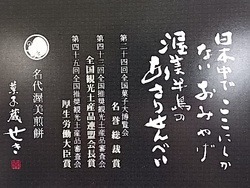 日本中でここにしか
ないおみやげ
渥美半島の
あさりせんべい
第二十四回全国菓子大博覧会
名誉総裁賞
第四十三回全国推奨観光土産品審査会
全国観光土産品連盟会長賞
第四十五回全国推奨観光土産品審査会
厚生労働大臣賞
名代渥美煎餅
菓子蔵せき